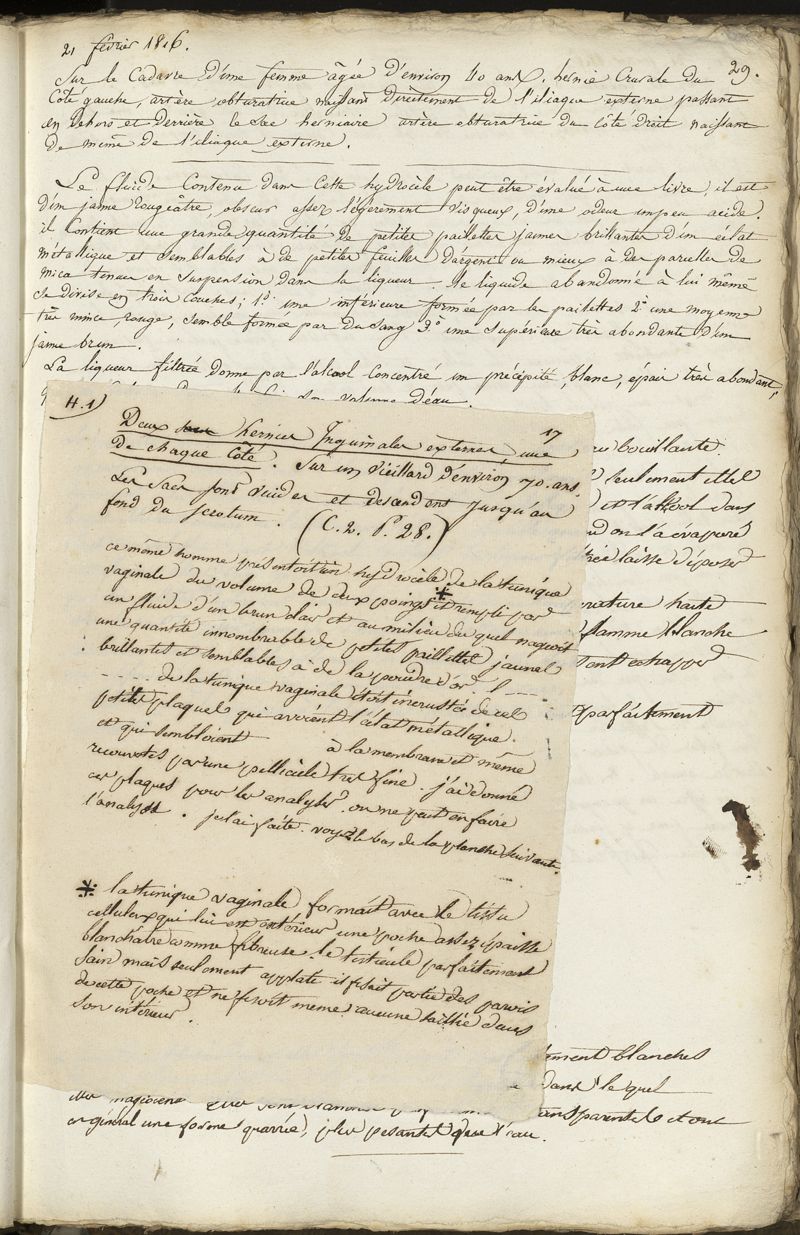 21 février 1816.
29.
Sur le Cadavre d'une femme âgée d'environ 40 ans. hernie Crurale du
Côté gauche, artère obturatrice naissant directement de l'iliaque externe passant
en dehors et derrière le sac herniaire artère obturatrice du côté droit naissant
de même de l'iliaque externe.
Le fluide Contenu dans Cette hydrocèle peut être évalué à une livre, il est
d'un jaune rougeâtre, obscur assez légèrement visqueux, d'une odeur un peu acide.
il Contient une grande quantité de petites paillettes jaunes brillantes d'un éclat
métallique et semblables à de petites feuilles d'argent ou mieux à des parcelles de
mica tenues en suspension dans la liqueur. Le liquide abandonné à lui même
se divise en trois Couches; 1º. une inférieure formée par les paillettes 2º une moyenne
très mince, rouge, semble formée par du sang 3º. une supérieure très abondante d'un
jaune brun.
La liqueur filtrée donne par l'alcool concentré un précipité, blanc, épais très abondant,
son volume d'eau.
H. 1)
17
Deux hernies Inguinales externes, une
de chaque Côté. Sur un vieillard d'environ 70. ans.
Les sacs sont vuides et descendent jusqu'au
fond du scrotum. (C. 2. P. 28.)
ce même homme présentoit un hydrocèle de la tunique
vaginale du volume de deux poings * et rempli par
un fluide d'un brun clair et au milieu du quel nageoit
une quantité innombrable de petites paillettes jaunes
brillantes et semblables à de la poudre d'or. l
de la tunique vaginale étoit incrustée de ces
petites plaques qui avoient l'éclat métallique.
et qui sembloient à la membrane et même
recouvertes par une pellicule très fine. j'ai donné
ces plaques pour les analyser. on ne peut en faire
l'analyse. je l'ai faite. voyez le bas de la planche suivante.
* la tunique vaginale formait avec le tissu
celluleux qui lui est extérieur une poche assez épaisse
blanchâtre comme fibreuse le testicule parfaitement
sain mais seulement applati il fesait partie des parois
de cette poche et ne fesoit meme aucune saillie dans
son intérieur.
bouillante.
seulement elles
et l'alkool dans
on l'a évaporé
laisse déposer
haute
flamme blanche
sont échappé
parfaitement
blanches
dans le quel
transparentes et ont
en général une forme quarrée, plus pesantes que l'eau.